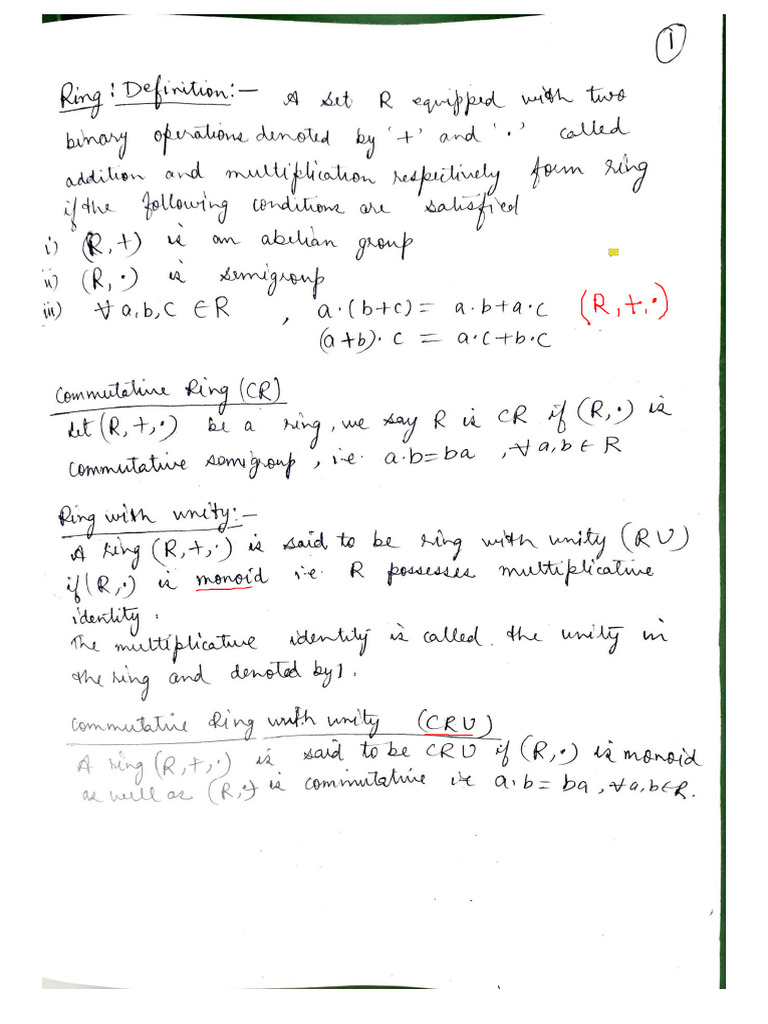 1
Ring: Definition:- A set R equipped with two
binary operations denoted by '+' and '·' called
addition and multiplication respectively form ring
if the following conditions are satisfied
i) (R,+) is an abelian group
ii) (R,·) is semigroup
iii) ∀ a,b,c ∈ R , a·(b+c) = a·b+a·c (R,+,·)
(a+b)·c = a·c+b·c
Commutative Ring (CR)
Let (R,+,·) be a ring, we say R is CR if (R,·) is
commutative semigroup, i.e. a·b=ba , ∀ a,b ∈ R
Ring with unity:-
A ring (R,+,·) is said to be ring with unity (RU)
if (R,·) is monoid i.e. R possesses multiplicative
identity.
The multiplicative identity is called the unity in
the ring and denoted by 1.
Commutative Ring with unity (CRU)
A ring (R,+,·) is said to be CRU if (R,·) is monoid
as well as (R,·) is commutative ie a·b = ba, ∀ a,b∈R.